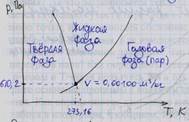 P, Па
Жидкая
фаза
Твёрдая
фаза
Газовая
фаза (пар)
610,2
V = 0,00100 м³/кг
273,16
T, К